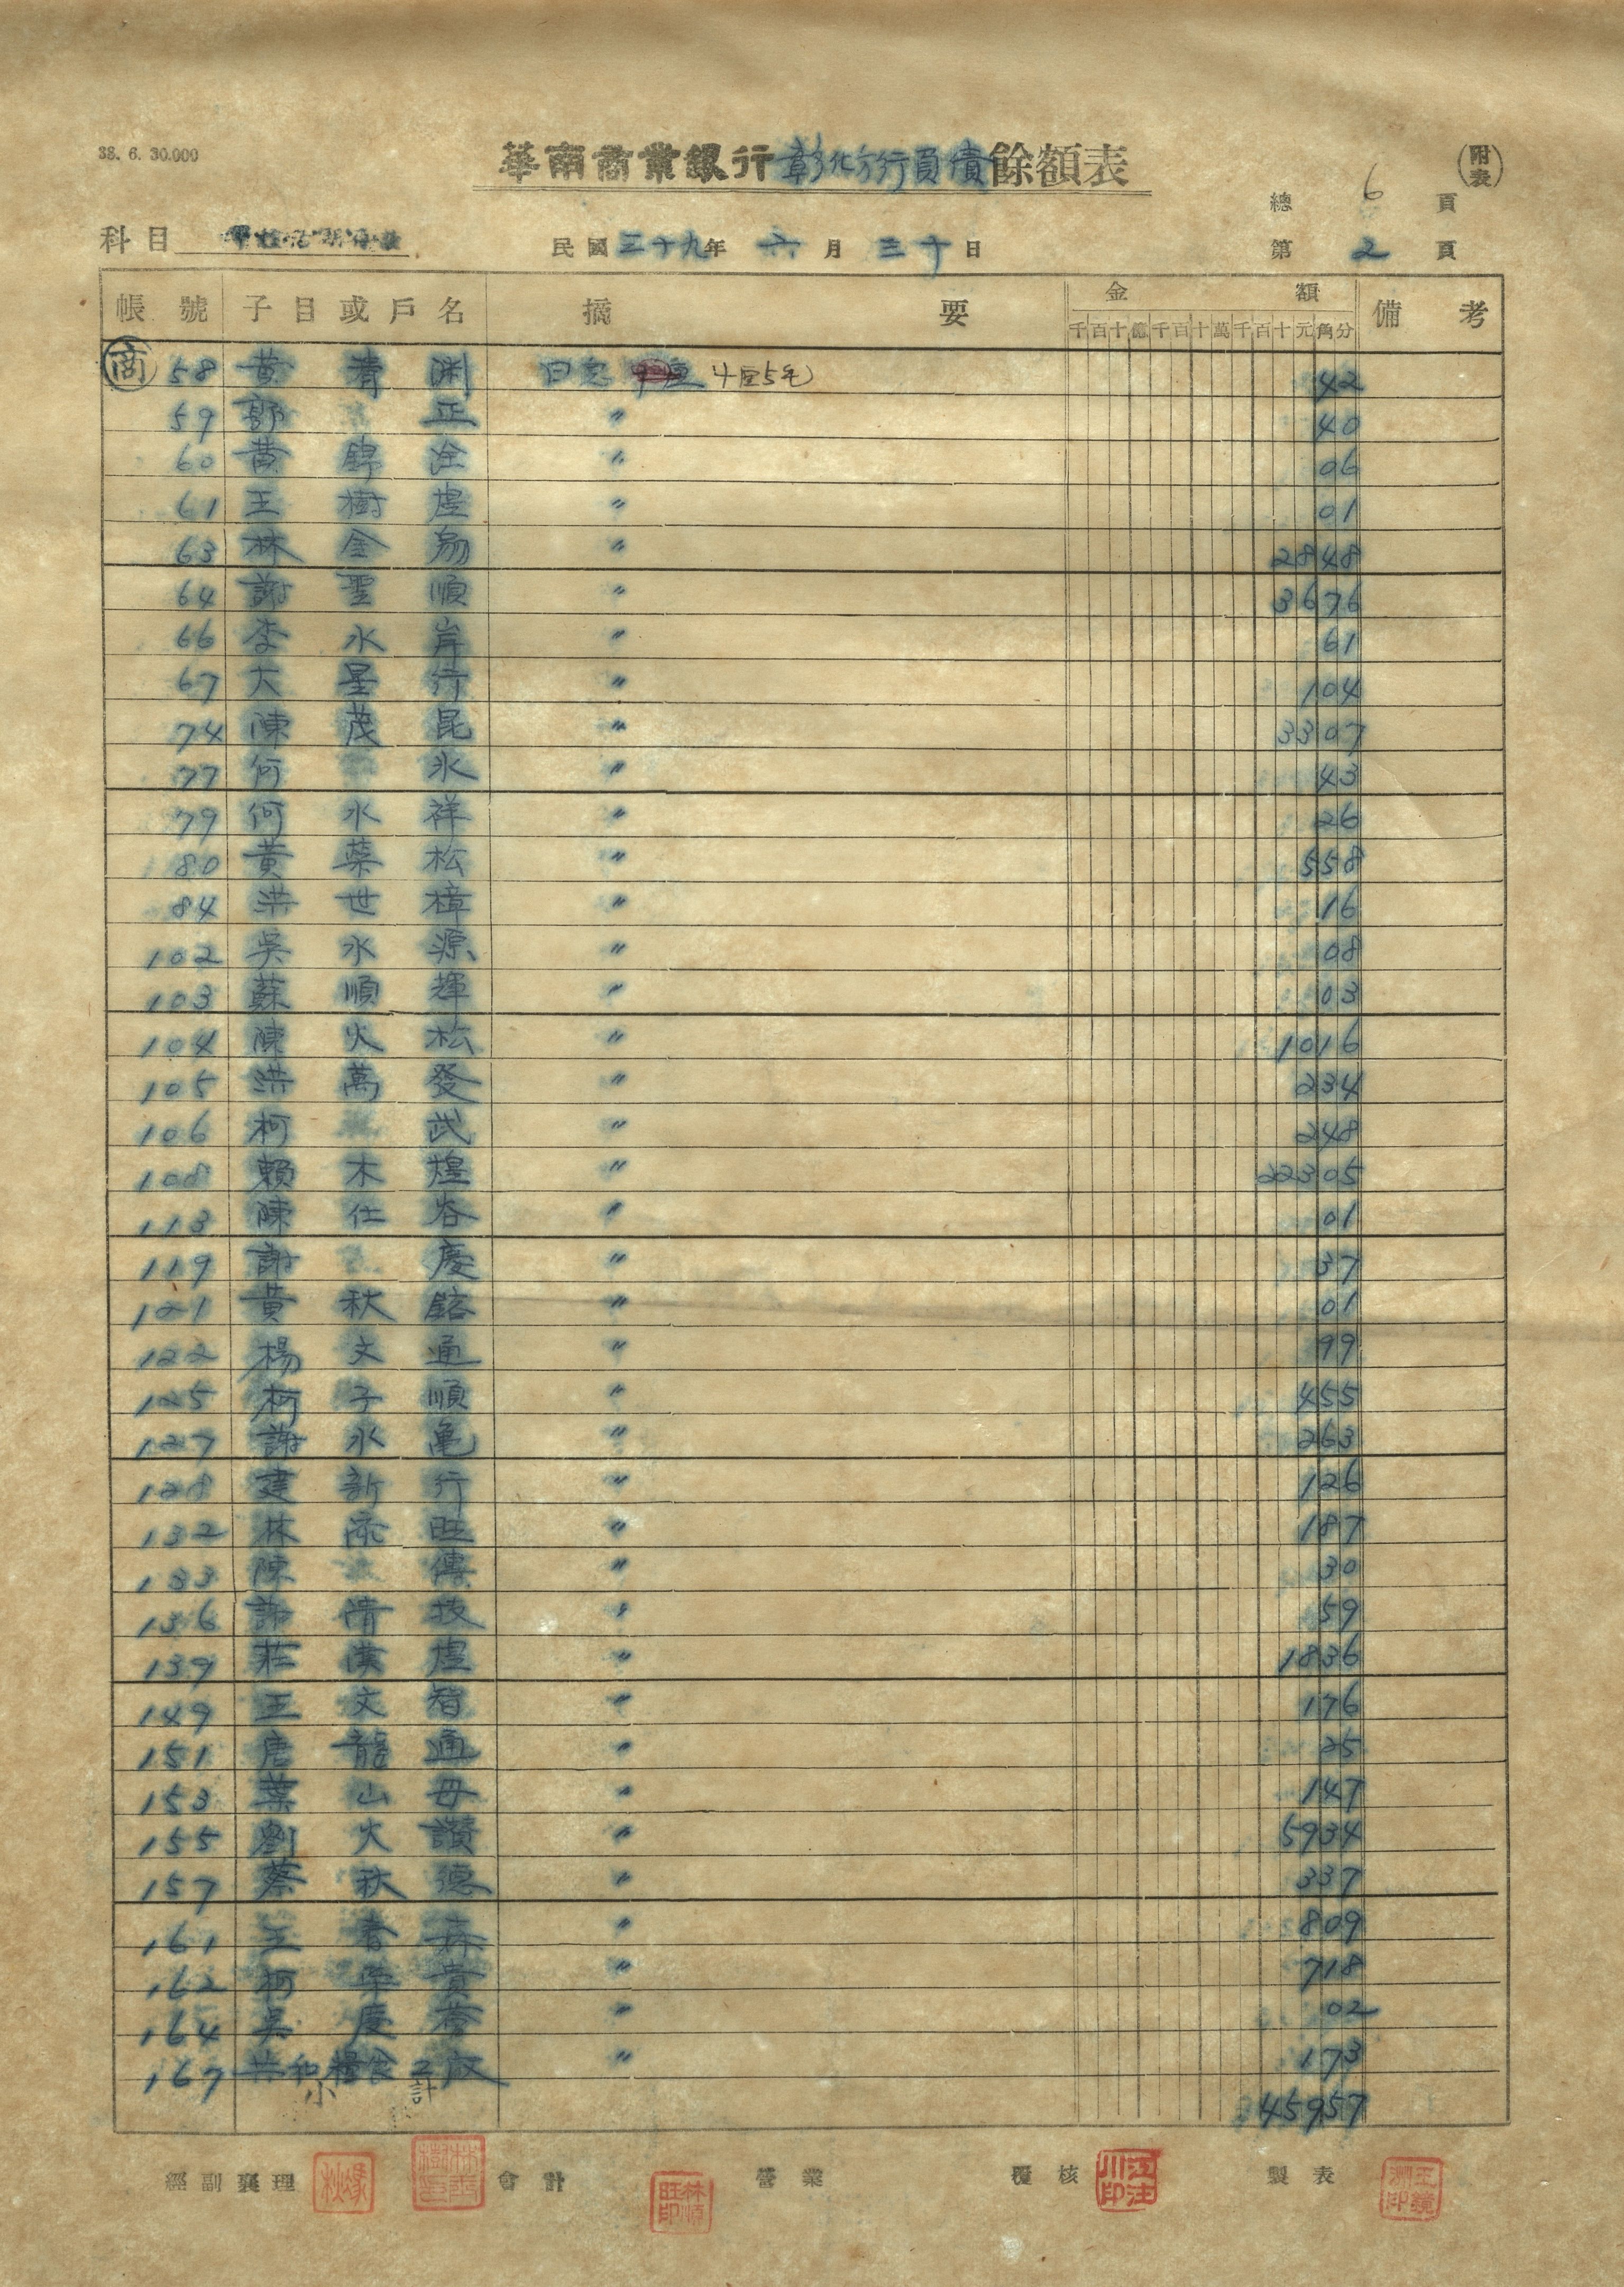 38. 6. 30.000
華南商業銀行彰化分行負債餘額表
附表
總 6 頁
科目
民國三十九年 六 月 三十 日
第 2 頁
帳號 子目或戶名 摘要 金額 備考
千百十億千百十萬千百十元角分
商 58 黃清渊 日息 4厘5毛 42
59 郭正 〃 40
60 黃錦 〃 06
61 王樹煌 〃 01
63 林金 〃 2848
64 謝聖順 〃 3676
66 李水岸 〃 61
67 大星行 〃 104
74 陳茂昆 〃 3307
77 何永 〃 43
79 何水祥 〃 26
80 黃葉松 〃 558
84 洪世樟 〃 16
102 吳水源 〃 08
103 蘇順輝 〃 03
104 陳火松 〃 1016
105 洪萬發 〃 234
106 柯武 〃 248
108 賴木煌 〃 22305
113 陳仕 〃 01
119 謝慶 〃 37
121 黃秋 〃 01
122 楊文通 〃 99
125 柯子順 〃 455
127 謝水亀 〃 263
128 建新行 〃 126
132 林添旺 〃 187
133 陳傳 〃 30
136 謝清技 〃 59
139 莊漢煌 〃 1836
149 王文智 〃 176
151 唐龍通 〃 25
153 葉山母 〃 147
155 劉火讚 〃 5934
157 蔡秋德 〃 337
161 王春 〃 809
162 柯榮貴 〃 718
164 吳慶 〃 02
167 共和糧食工厰 〃 173
小計 45957
經副襄理 會計 營業 覆核 製表